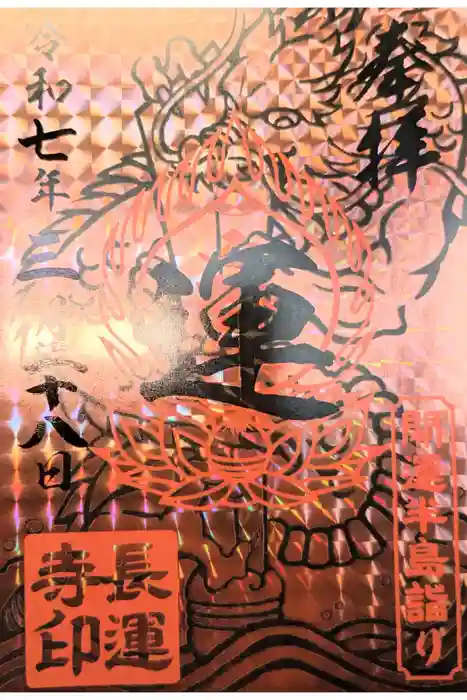 奉拝
開運半島詣り
運
令和七年三月十八日
長運
寺印